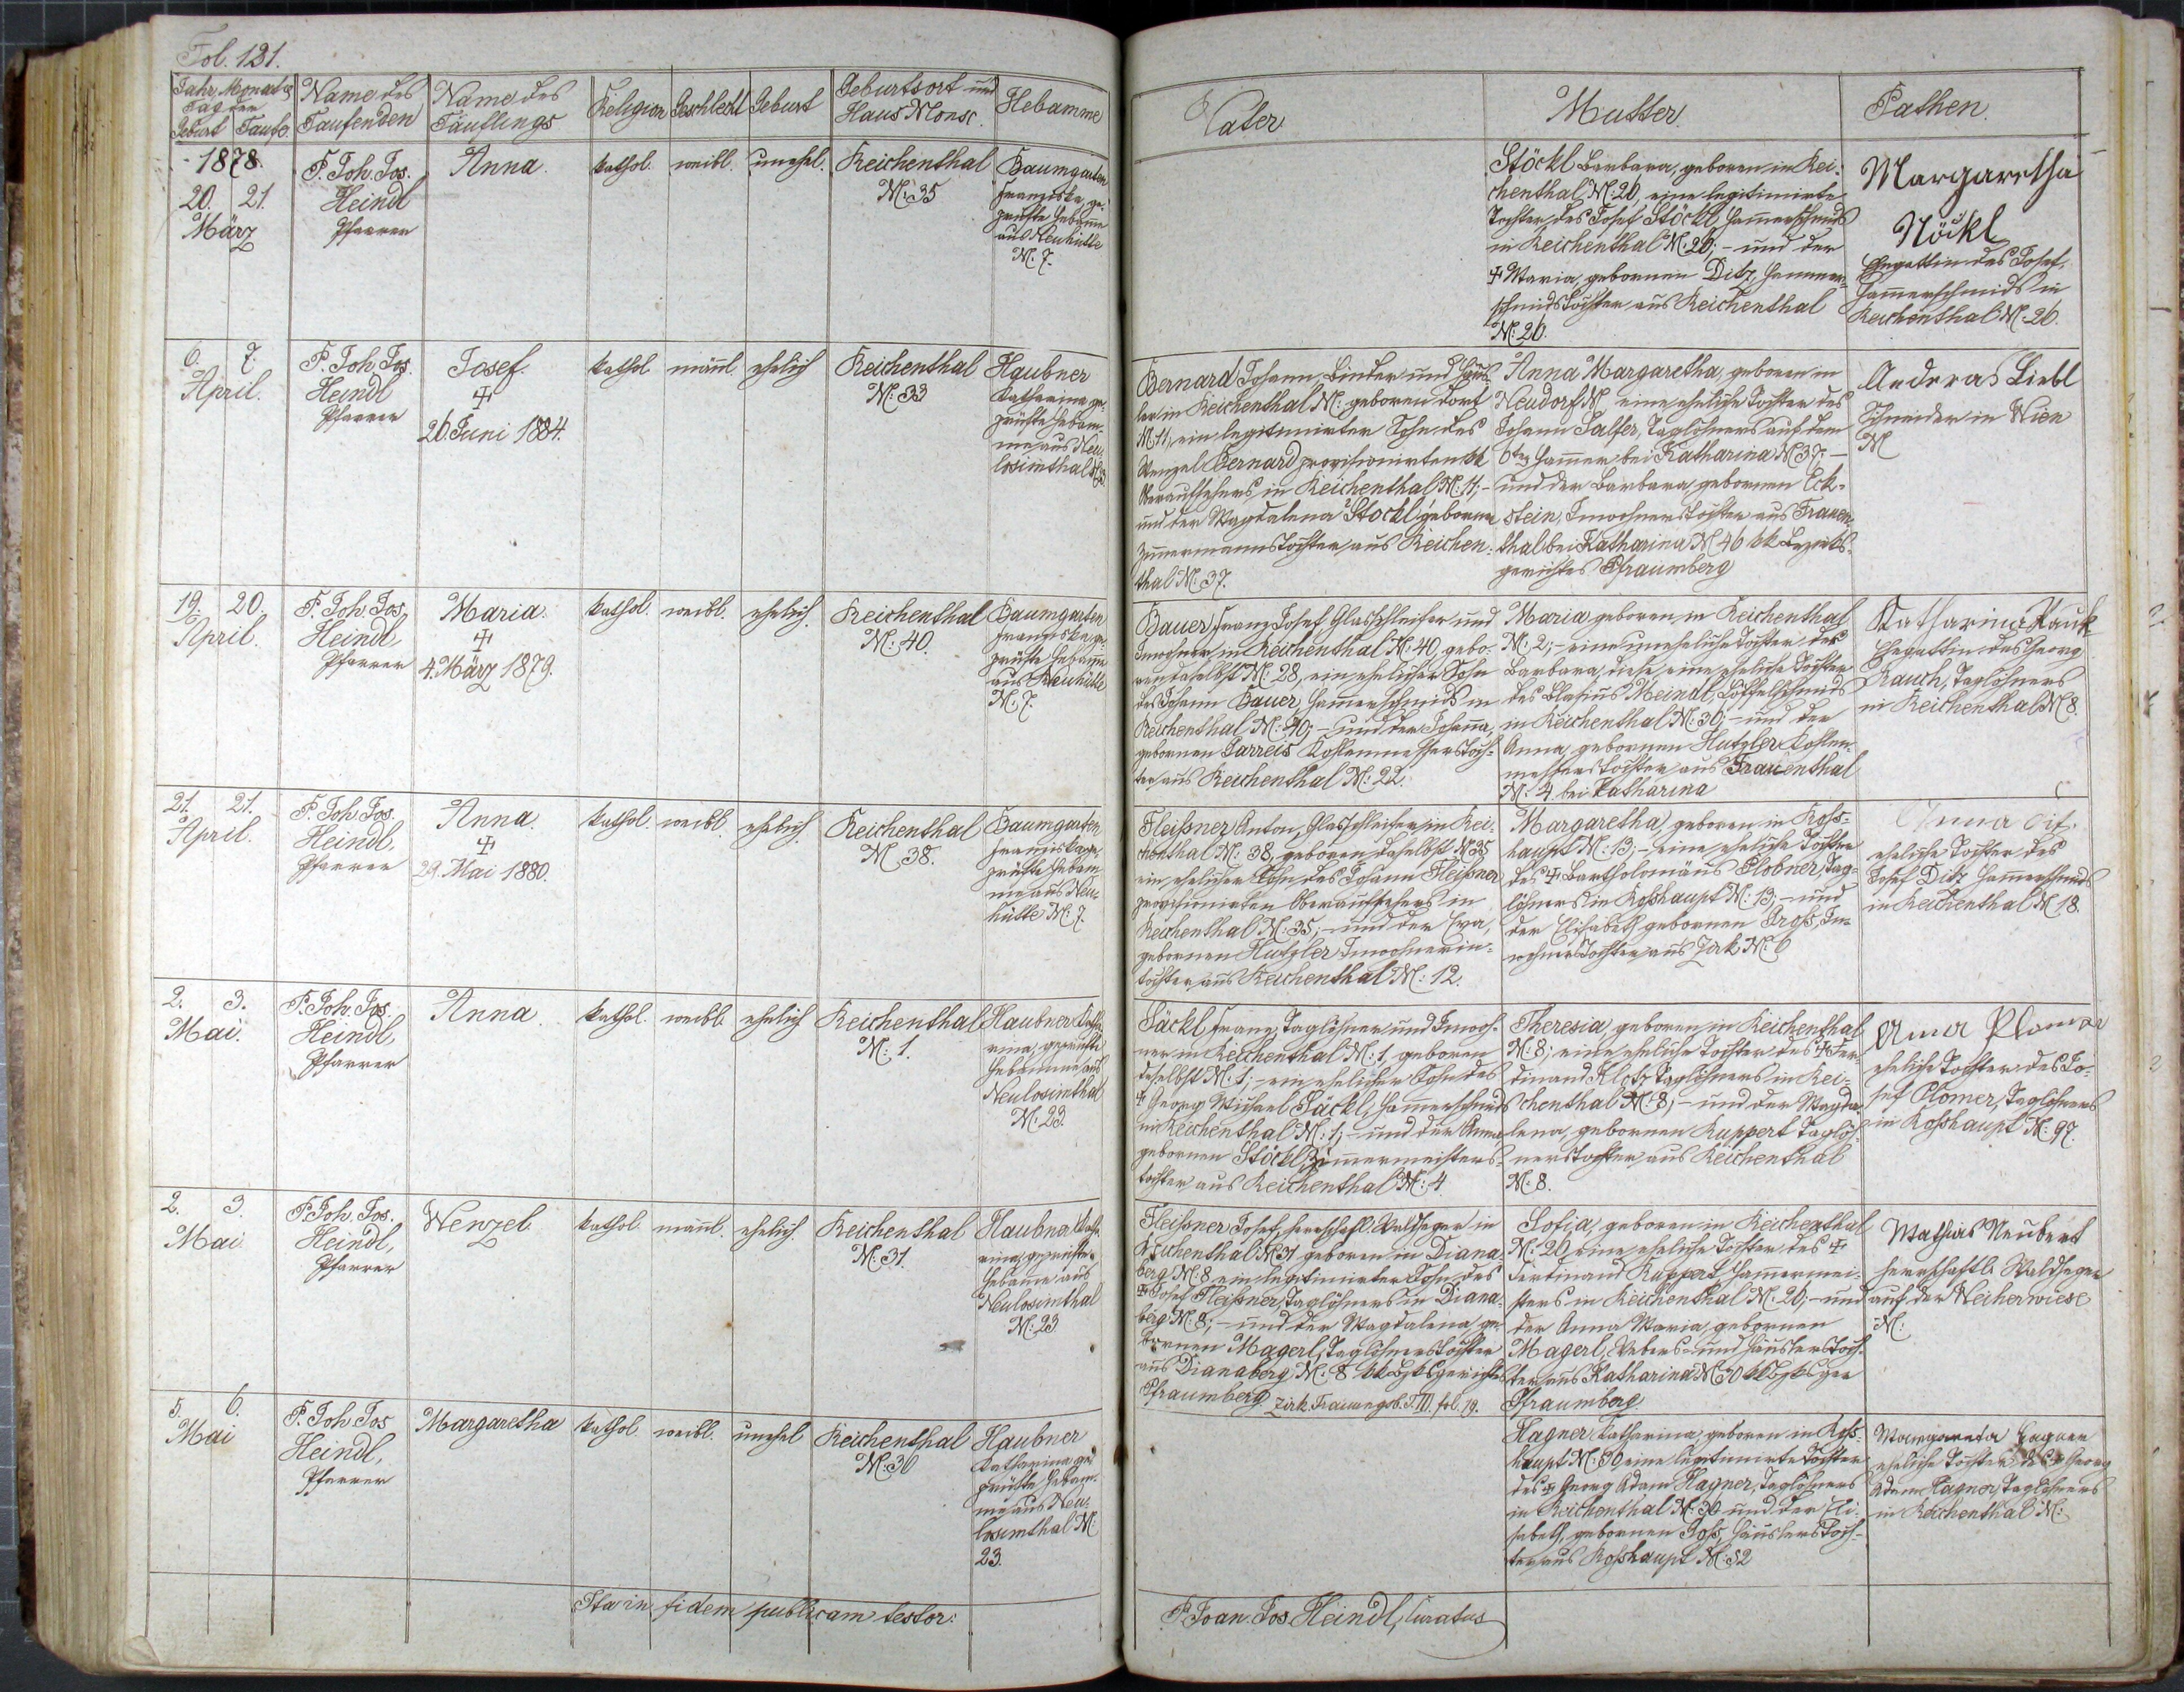 Fol. 121.
Jahr, Monat &
Tag der
Geburt Taufe
Name des
Taufenden
Name des
Täuflings
Religion
Geschlecht
Geburt
Geburtsort und
Haus Nonsc.
Hebamme
Vater
Mutter
Pathen.
1878.
20. 21.
März
P. Joh. Jos.
Heindl
Pfarrer
Anna.
kathol.
weibl.
unehel.
Reichenthal
N: 35
Baumgarten
Franziska, ge-
prüfte Hebamme
aus Neuhütte
N: 7.
Stöckl Barbara, geboren in Rei-
chenthal N: 20, eine legitimirte
Tochter des Josef Stöckl Hammerschmids
in Reichenthal N: 20; – und der
+ Maria, gebornen Ditz, Hammer-
schmidstochter aus Reichenthal
N: 20.
Margaretha
Nöckl
Ehegattin des Josef,
Hammerschmids in
Reichenthal N: 26.
6. 7.
April.
P. Joh. Jos.
Heindl
Pfarrer
Josef
+
26. Juni 1884.
kathol
männl
ehelich
Reichenthal
N: 33
Haubner
Katharina ge-
prüfte Hebam-
me aus Neu-
losimthal
Bernard Johann, Binder und Häus-
ler in Reichenthal N: geboren dort
N 11, ein legitimirter Sohn des
Wenzel Bernard provisionirten kk
Oberaufsehers in Reichenthal N: 11; –
und der Magdalena Stöckl geborne
Zimmermannstochter, aus Reichen-
thal N: 37.
Anna Margaretha, geboren in
Neudorf N eine eheliche Tochter des
Johann Salfer, Taglöhners auf dem
6ten Hammer bei Katharina N 37. –
und der Barbara, gebornen Eck-
stein, Inwohnerstochter aus Frauen-
thal bei Katharina N 46 kk Bezirks-
gerichtes Pfraumberg
Anderas Liebl
Schneider in Wien
N
19. 20.
April.
P. Joh. Jos.
Heindl,
Pfarrer
Maria.
+
4. März 1879.
kathol.
weibl.
ehelich.
Reichenthal
N: 40.
Baumgarten
Franziska ge-
prüfte Hebamme
aus Neuhütte
N: 7.
Bauer Franz Josef Glasschleifer und
Inwohner in Reichenthal N: 40, gebo-
ren daselbst N: 28, ein ehelicher Sohn
des Johann Bauer, Hammerschmids in
Reichenthal N: 40; – und der Johanna,
gebornen Parreis Kohlenmesserstoch-
ter aus Reichenthal N: 22.
Maria geboren in Reichenthal
N: 2; – eine uneheliche Tochter der
Barbara, diese eine eheliche Tochter
des Blasius Meindl, Löffelschmids
in Reichenthal N: 30; – und der
Anna, gebornen Hutzler Kohlen-
messerstochter aus Frauenthal
N: 4. bei Katharina
Katharina Rauch
Ehegattin des Georg
Rauch, Taglöhners
in Reichenthal N 8.
21. 21.
April.
P. Joh. Jos.
Heindl,
Pfarrer
Anna.
+
29. Mai 1880.
kathol.
weibl.
ehelich.
Reichenthal
N 38.
Baumgarten
Franziska ge-
prüfte Hebam-
me aus Neu-
hütte N: 7.
Fleißner Anton, Glasschleifer in Rei-
chenthal N: 38, geboren daselbst N 35
ein ehelicher Sohn des Johann Fleißner
provisionirten Oberaufsehers in
Reichenthal N: 35; – und der Eva,
gebornen Hutzler Inwohnerin-
tochter aus Reichenthal N: 12.
Margaretha, geboren in Roß-
haupt N: 13; – eine eheliche Tochter
des + Bartholomäus Plobner, Tag-
löhners in Roßhaupt N: 13; – und
der Elisabeth gebornen Droß, In-
wohnerstochter aus Zirk N: 6
Anna Dit.
eheliche Tochter des
Josef Ditz Hammerschmids
in Reichenthal N 18.
2. 3.
Mai.
P. Joh. Jos.
Heindl,
Pfarrer
Anna
kathol.
weibl.
ehelich
Reichenthal
N: 1.
Haubner Katha-
rina, geprüfte
Hebamme aus
Neulosimthal
N: 23.
Säckl Franz, Taglöhner und Inwoh-
ner in Reichenthal N: 1, geboren
daselbst N: 1; – ein ehelicher Sohn des
+ Georg Michael Säckl, Hammerschmids
in Reichenthal N: 1; – und der Anna
gebornen Stöckl, Zimmermeisters-
tochter aus Reichenthal N: 4.
Theresia, geboren in Reichenthal
N: 8; eine eheliche Tochter des + Fer-
dinand Klotz, Taglöhners in Rei-
chenthal N: 8; – und der Magda-
lena, gebornen Ruppert Taglöh-
nerstochter aus Reichenthal
N: 8.
Anna Plomer
eheliche Tochter des Jo-
sef Plomer, Taglöhners
in Roßhaupt N: 97.
2. 3.
Mai
P. Joh. Jos.
Heindl,
Pfarrer
Wenzel
kathol
männl.
ehelich.
Reichenthal
N: 31.
Haubner Katha-
rina, geprüfte
Hebamme aus
Neulosimthal
N: 23
Fleißner Josef, herrschaftl. Waldheger in
Reichenthal N 31 geboren in Diana-
berg N: 8 ein legitimirter Sohn des
+ Josef Fleißner, Taglöhners in Diana-
berg N: 8; – und der Magdalena, ge-
bornen Magerl, Taglöhnerstochter
aus Dianaberg N: 8 kk Bzksgerichtes
Pfraumberg Zirk. Trauungsb. T. III. fol. 19.
Sofia, geboren in Reichenthal
N: 20, eine eheliche Tochter des +
Ferdinand Ruppert, Hammermei-
sters in Reichenthal N: 20; – und
der Anna Maria, gebornen
Magerl, Webers- und Häuslerstoch-
ter aus Katharina N 30 kk Bzksger
Pfraumberg
Mathias Neubert
herrschaftl. Waldheger
auf der Weiherwiese
N:
5. 6.
Mai
P. Joh Jos
Heindl,
Pfarrer
Margaretha
kathol
weibl.
unehel
Reichenthal
N: 30
Haubner
Katharina ge-
prüfte Hebam-
me aus Neu-
losimthal N:
23.
Hagner Katharina, geboren in Roß-
haupt N: 80 eine legitimirte Tochter
des + Georg Adam Hagner, Taglöhners
in Reichenthal N: 30 und der Eli-
sabeth, gebornen Goß, Häuslerstoch-
ter aus Roßhaupt N: 52
Margareta Hagner
eheliche Tochter des + Georg
Adam Hagner, Taglöhners
in Reichenthal N:
Ita in fidem publicam testor:
P. Joan. Jos. Heindl, Curatus